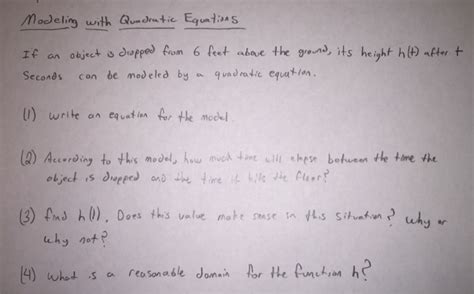 Modeling with Quadratic Equations
If an object is dropped from 6 feet above the ground, its height h(t) after t
Seconds can be modeled by a quadratic equation.
(1) write an equation for the model.
(2) According to this model, how much time will elapse between the time the
object is dropped and the time it hits the floor?
(3) find h(1). Does this value make sense in this situation? why or
why not?
(4) what is a reasonable domain for the function h?